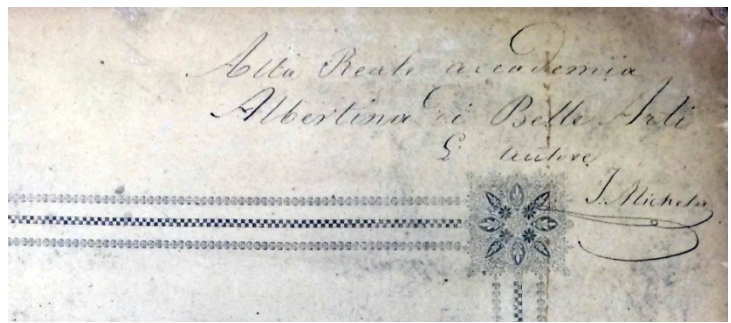 Alla Reale accademia
Albertina di Belle Arti
L'autore
I. Michela